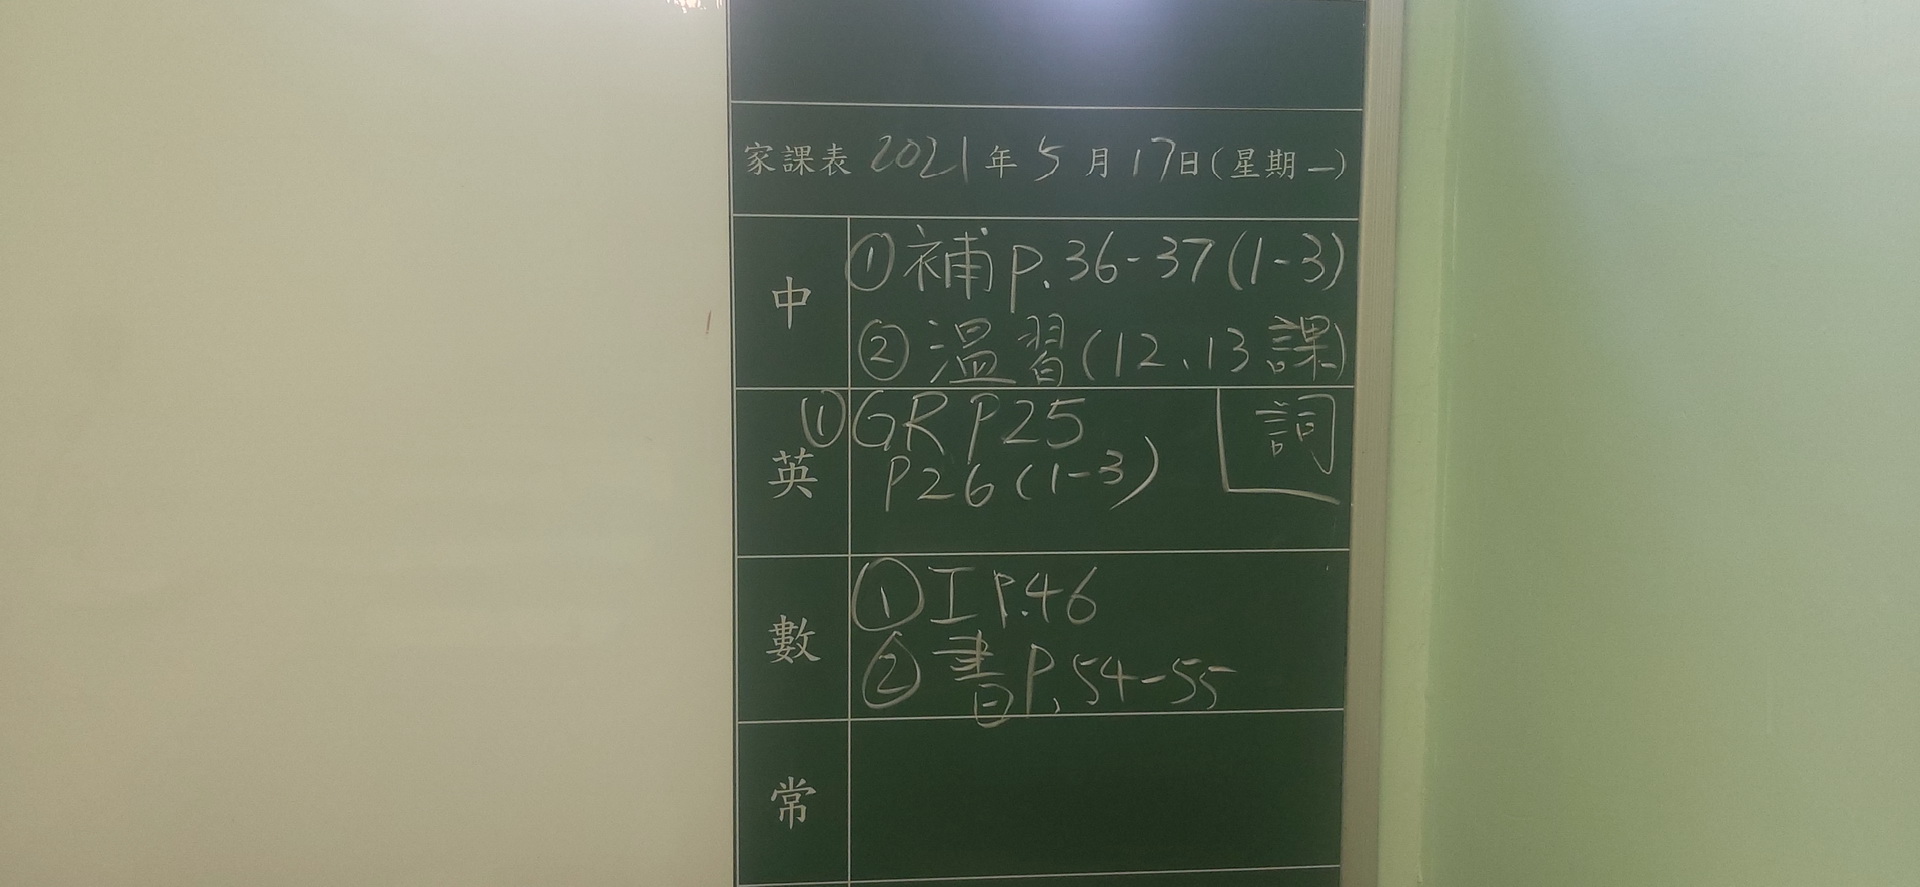 家課表 2021年5月17日(星期一)
中
①補P.36-37(1-3)
②溫習(12、13課)
詞
英
①GR P25
P26(1-3)
數
①工P.46
②書P.54-55
常